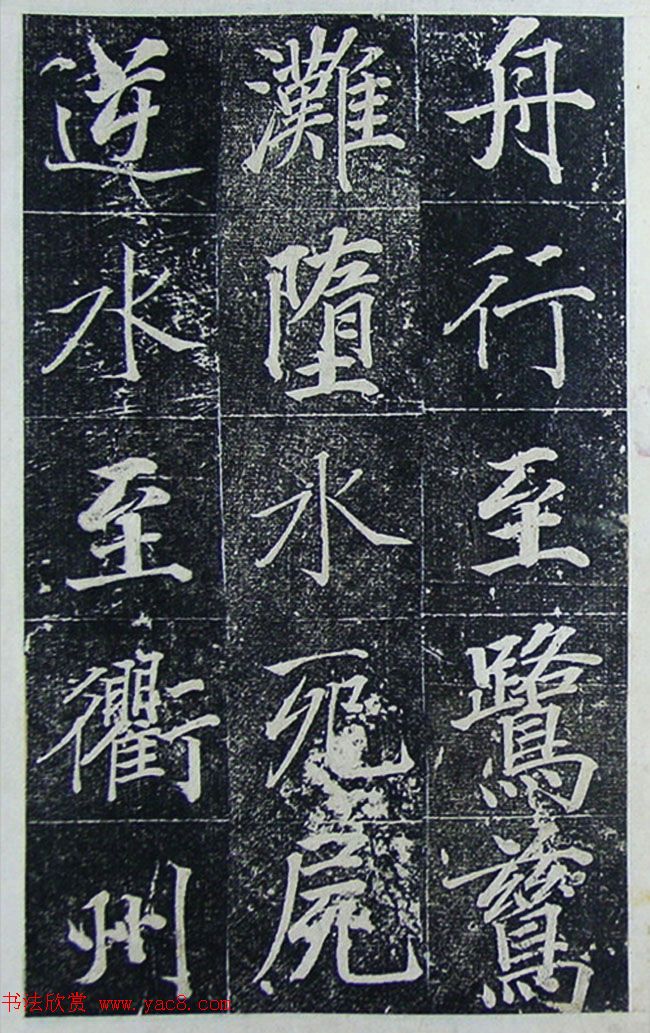 舟行至鷺鷥
灘墮水死屍
逆水至衢州
书法欣赏 www.yac8.com